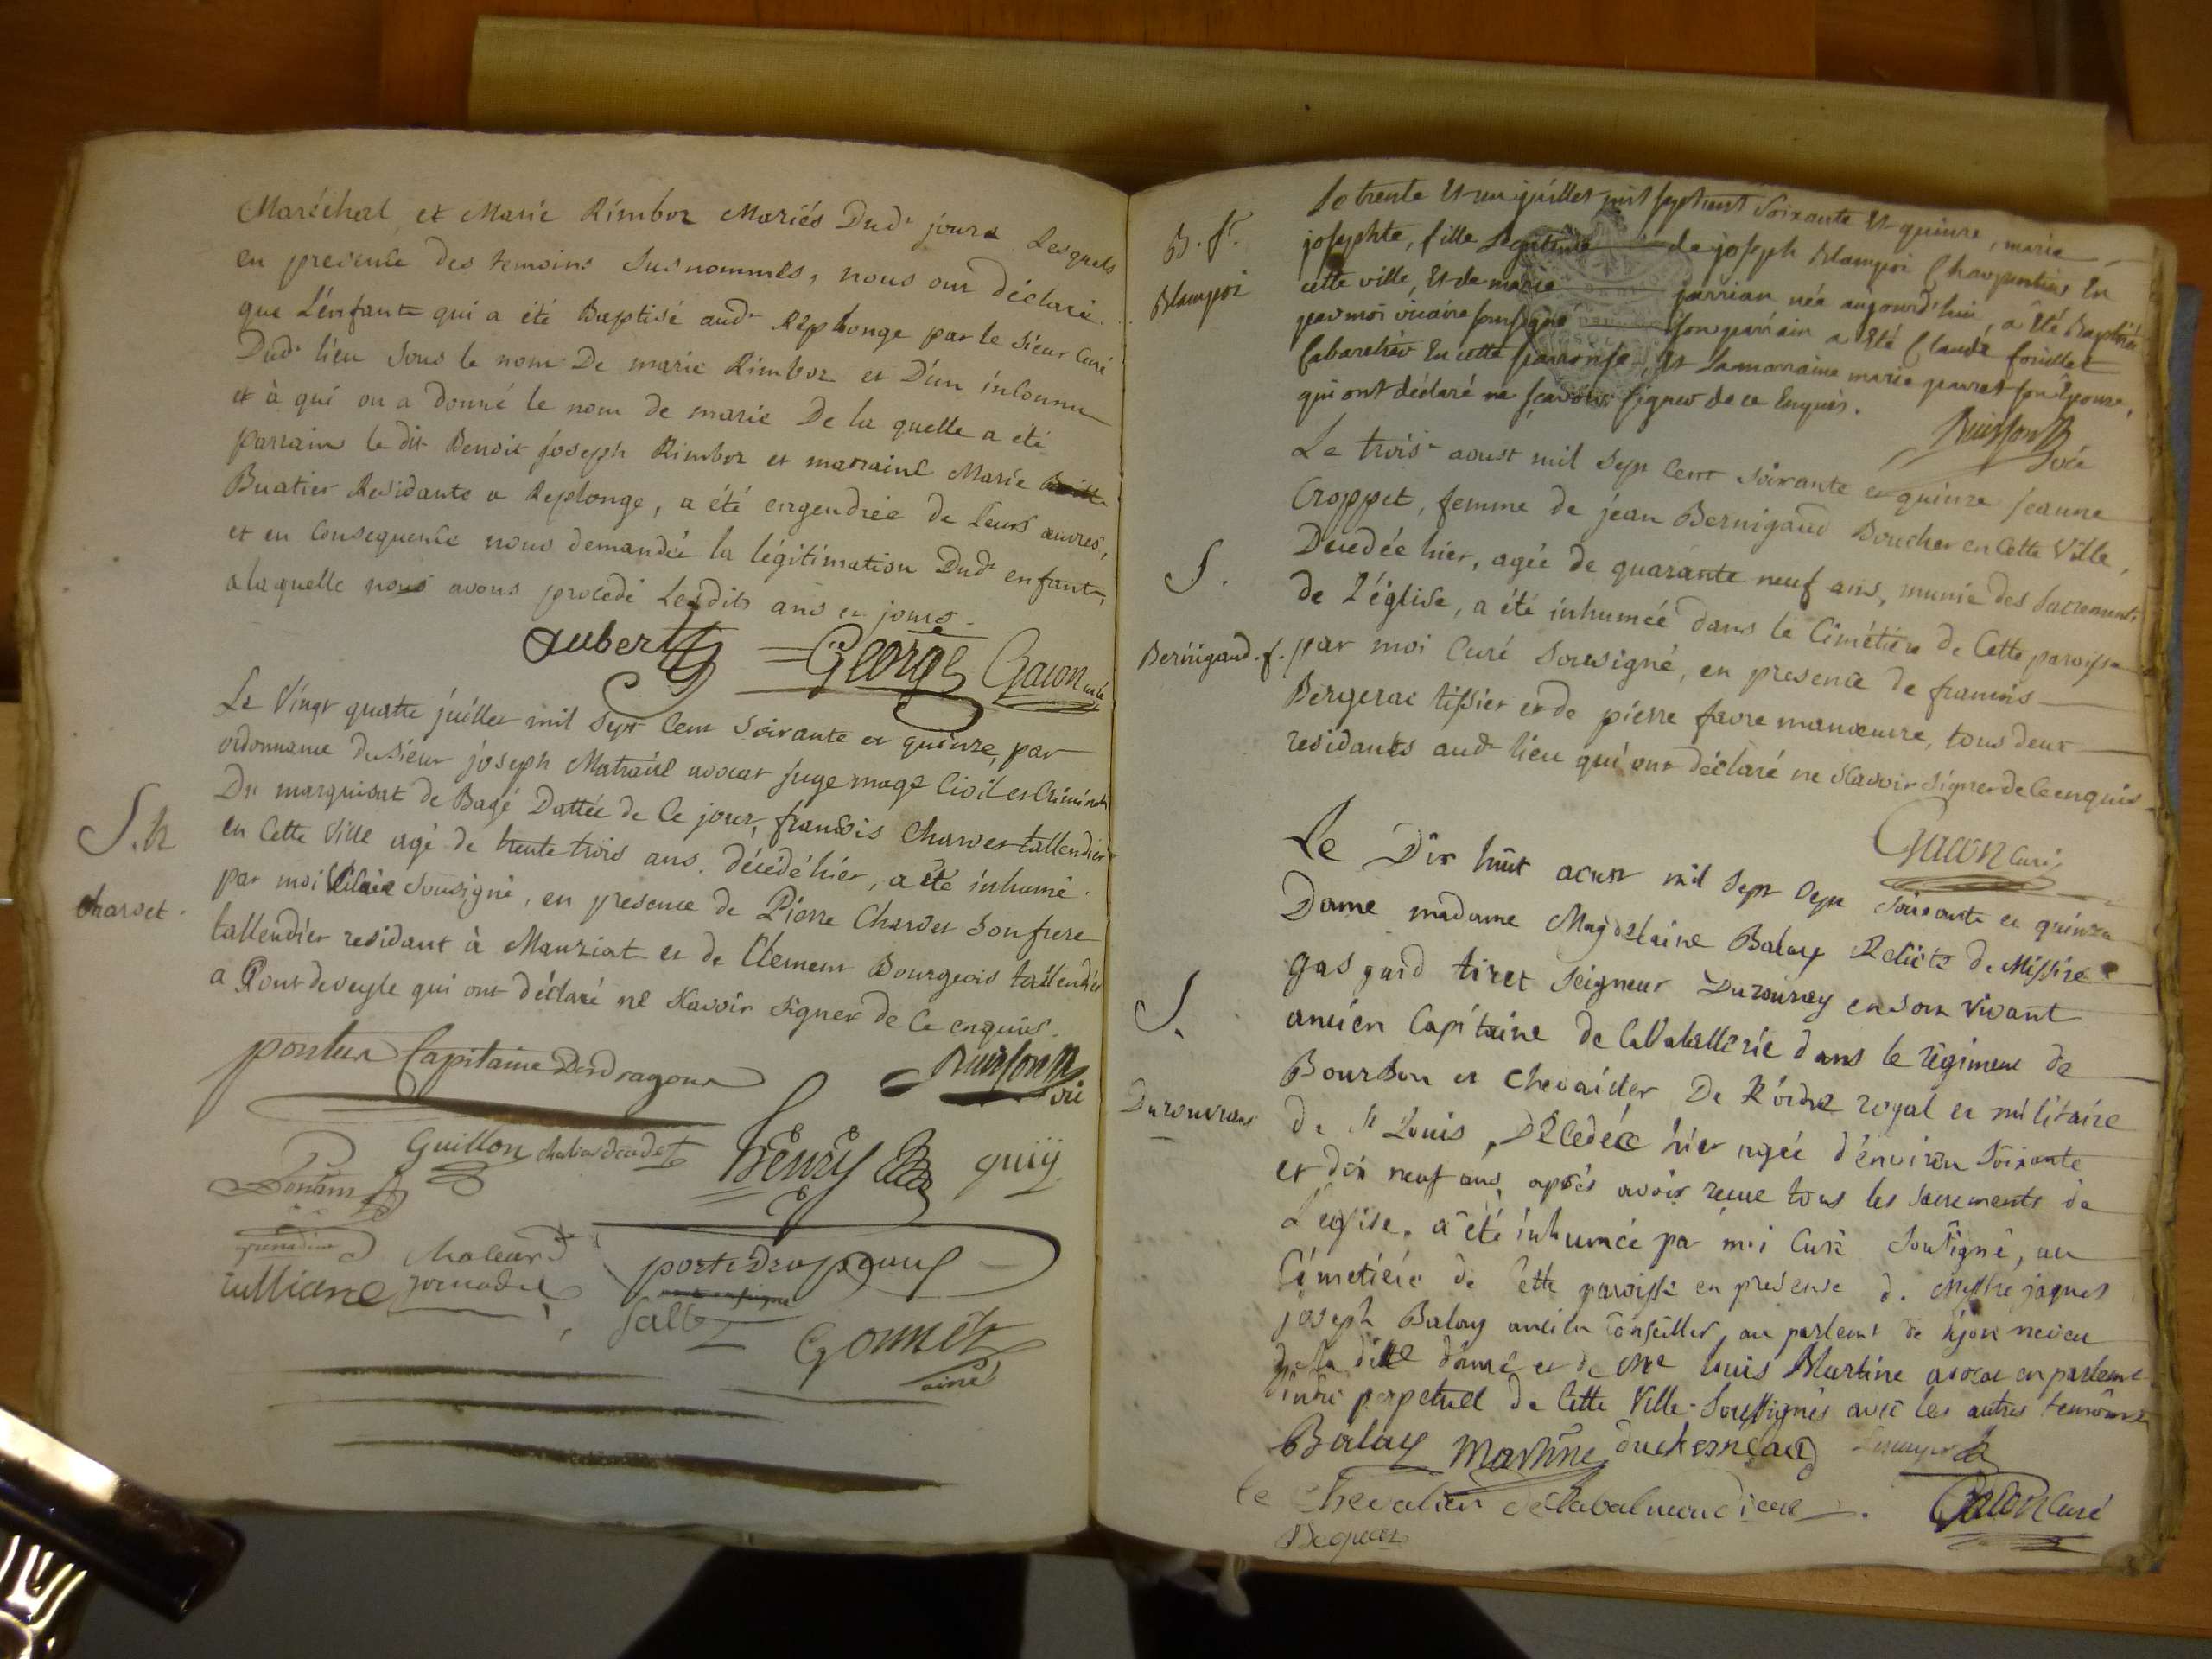 Maréchal et Marie Rimboz Mariés Dud. jours Lesquels
en presence des temoins Susnommés, nous ont déclaré
que L'enfant qui a été Baptisé aud. Replonge par le Sieur Curé
Dud. lieu sous le nom De marie Rimboz et D'un inconnu
et à qui on a donné le nom de marie De la quelle a été
parrain le dit Benoit joseph Rimboz et marraine Marie
Buatier Residante a Replonge, a été engendrée de leurs œuvres,
et en Consequence nous demandée la légitimation Dud. enfant,
a laquelle nous avons procédé Lesdits ans et jours.
Aubert George Gacon curé
S. h
Charvet.
Le Vingt quatre juillet mil Sept Cent Soixante et quinze, par
ordonnance du Sieur joseph avocat juge mage Civil et Criminel
Du marquisat de Bagé Dattée de Ce jour, francois Charvet tallendier
en Cette Ville agé de trente trois ans. décédé hier, a été inhumé
par moi Vicaire Sousigné, en presence de Pierre Charvet Son frere
tallendier residant à Manziat et de Clement Bourgeois tallendier
a Pont de veyle qui ont déclaré ne Scavoir Signer de Ce enquis.
Capitaine Buisson
Guillon Henry
porte Drapeau
jullien
Gonnet
ainé
B. f.
Blampoi
Le trente Et un juillet mil Sept cent Soixante Et quinze, marie
josephte, fille Legitime de joseph Blampoi Charpentier En
cette ville, Et de marie jarrian née aujourd'hui, a Eté Baptisée
par moi vicaire sousigné son parrain a Eté Claude
Cabaretier En cette parroisse, Et La marraine marie son Epouse,
qui ont déclaré ne scavoir signer de ce Enquis.
Buisson
S.
Bernigaud. f.
Le trois aoust mil Sept Cent Soixante et quinze jeanne
Croppet, femme de jean Bernigaud Boucher en Cette Ville,
Decedée hier, agée de quarante neuf ans, munie des Sacrements
de L'église, a été inhumée dans le Cimétiere de Cette paroisse
par moi Curé Sousigné, en presence de francois
Bergerac tissier et de pierre favre manoeuvre, tous deux
residants aud. lieu qui ont déclaré ne Scavoir Signer de Ce enquis
Gacon Curé
S.
Le Dix huit aoust mil Sept Sept Soixante et quinze
Dame madame Magdelaine Balay Relicte de Missire
gaspard tiret Seigneur en Son Vivant
ancien Capitaine de Cavalerie dans le régiment de
Bourbon et Chevalier De L'ordre royal et militaire
de St Louis, Décedée hier agée d'environ Soixante
et dix neuf ans, après avoir reçue tous les Sacrements de
L'eglise, a été inhumée par moi Curé Sousigné, au
Cimetiére de Cette paroisse en presence de Messire jaques
joseph Balay ancien Conseiller, au parlemt de Dijon neveu
de la ditte dame et de Mre louis Martine avocat en parlemt
Sindic perpetuel de Cette Ville Soussignés avec les autres temoins
Balay Martine
Le Chevalier
Gacon Curé